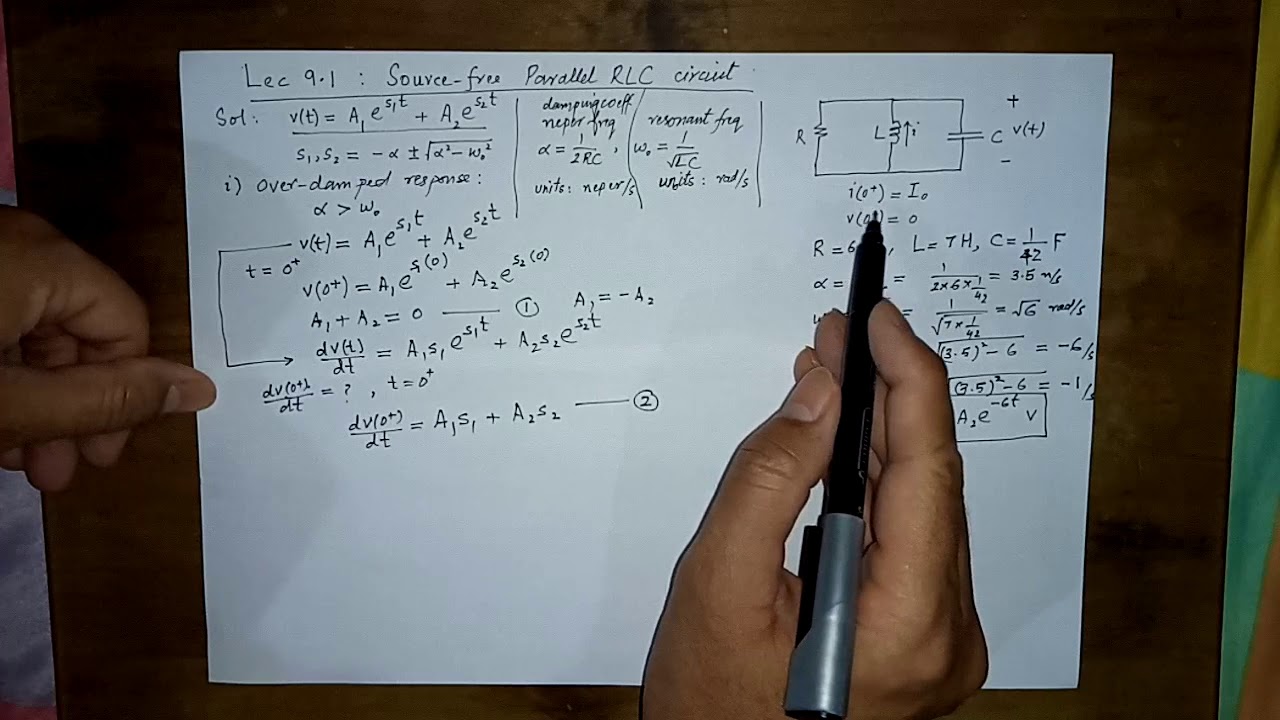 Lec 9.1 : Source-free Parallel RLC circuit
Sol: v(t) = A₁e^{s₁t} + A₂e^{s₂t}
s₁,s₂ = -α ± √(α²-ω₀²)
damping coeff
neper freq
α = 1/(2RC) ,
units: neper/s
resonant freq
ω₀ = 1/√(LC)
units: rad/s
i) Over-damped response:
α > ω₀
v(t) = A₁e^{s₁t} + A₂e^{s₂t}
t = 0⁺
v(0⁺) = A₁e^{s₁(0)} + A₂e^{s₂(0)}
A₁ + A₂ = 0 —— ① A₁ = -A₂
dv(t)/dt = A₁s₁e^{s₁t} + A₂s₂e^{s₂t}
dv(0⁺)/dt = ? , t = 0⁺
dv(0⁺)/dt = A₁s₁ + A₂s₂ —— ②
R L ↑i C v(t)
+
-
i(0⁺) = I₀
v(0⁺) = 0
R = 6 , L = 7H, C = 1/42 F
α = = 1/(2×6×1/42) = 3.5 n/s
= 1/√(7×1/42) = √6 rad/s
√((3.5)²-6) = -6/s
√((3.5)²-6) = -1/s
A₂e^{-6t} V